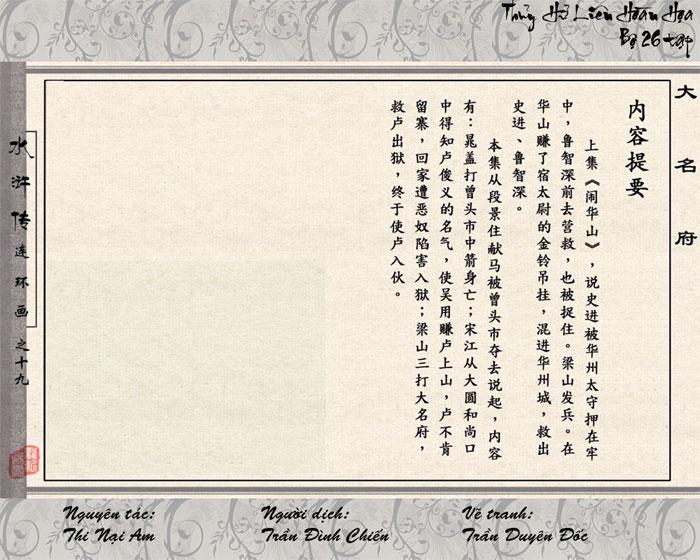 Thủy Hử Liên Hoàn Họa
Bộ 26 tập
大名府
内容提要
上集《闹华山》，说史进被华州太守押在牢
中，鲁智深前去营救，也被捉住。梁山发兵。在
华山赚了宿太尉的金铃吊挂，混进华州城，救出
史进、鲁智深。
本集从段景住献马被曾头市夺去说起，内容
有：晁盖打曾头市中箭身亡；宋江从大圆和尚口
中得知卢俊义的名气，使吴用赚卢上山，卢不肯
留寨，回家遭恶奴陷害入狱；梁山三打大名府，
救卢出狱，终于使卢入伙。
水浒传连环画之十九
Nguyên tác:
Thi Nại Am
Người dịch:
Trần Đình Chiến
Vẽ tranh:
Trần Duyên Đốc